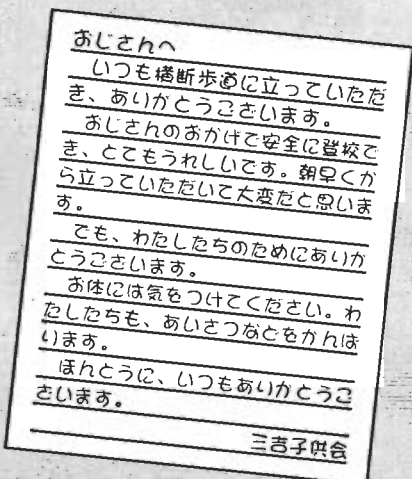 おじさんへ
いつも横断歩道に立っていただ
き、ありがとうございます。
おじさんのおかげで安全に登校で
き、とてもうれしいです。朝早くか
ら立っていただいて大変だと思いま
す。
でも、わたしたちのためにありが
とうございます。
お体には気をつけてください。わ
たしたちも、あいさつなどをがんば
ります。
ほんとうに、いつもありがとうご
ざいます。
三吉子供会